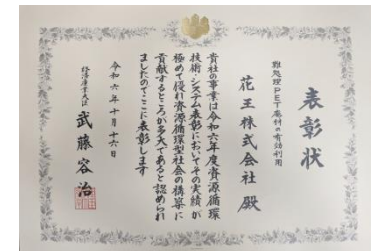 表彰状
難処理PET廃料の有効利用
花王株式会社 殿
貴社の事業は令和六年度資源循環
技術・システム表彰においてその実績が
極めて優れ資源循環型社会の構築に
貢献するところが多大であると認められ
ましたのでここに表彰します
令和六年十月十六日
経済産業大臣 武藤容治